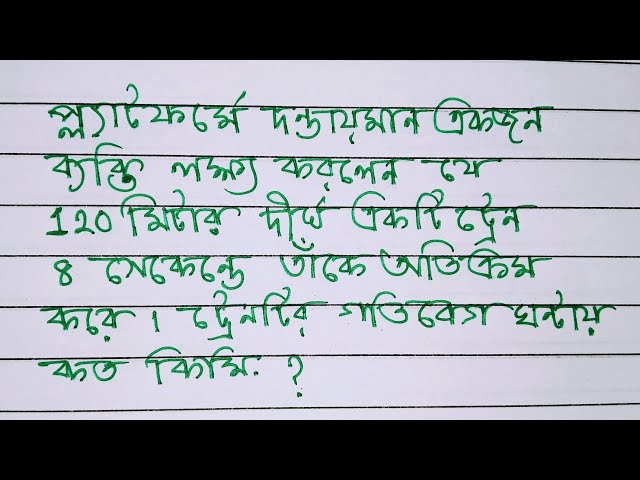 প্ল্যাটফর্মে দন্ডায়মান একজন
ব্যক্তি লক্ষ্য করলেন যে
120 মিটার দীর্ঘ একটি ট্রেন
8 সেকেন্ডে তাঁকে অতিক্রম
করে। ট্রেনটির গতিবেগ ঘন্টায়
কত কিমিঃ ?